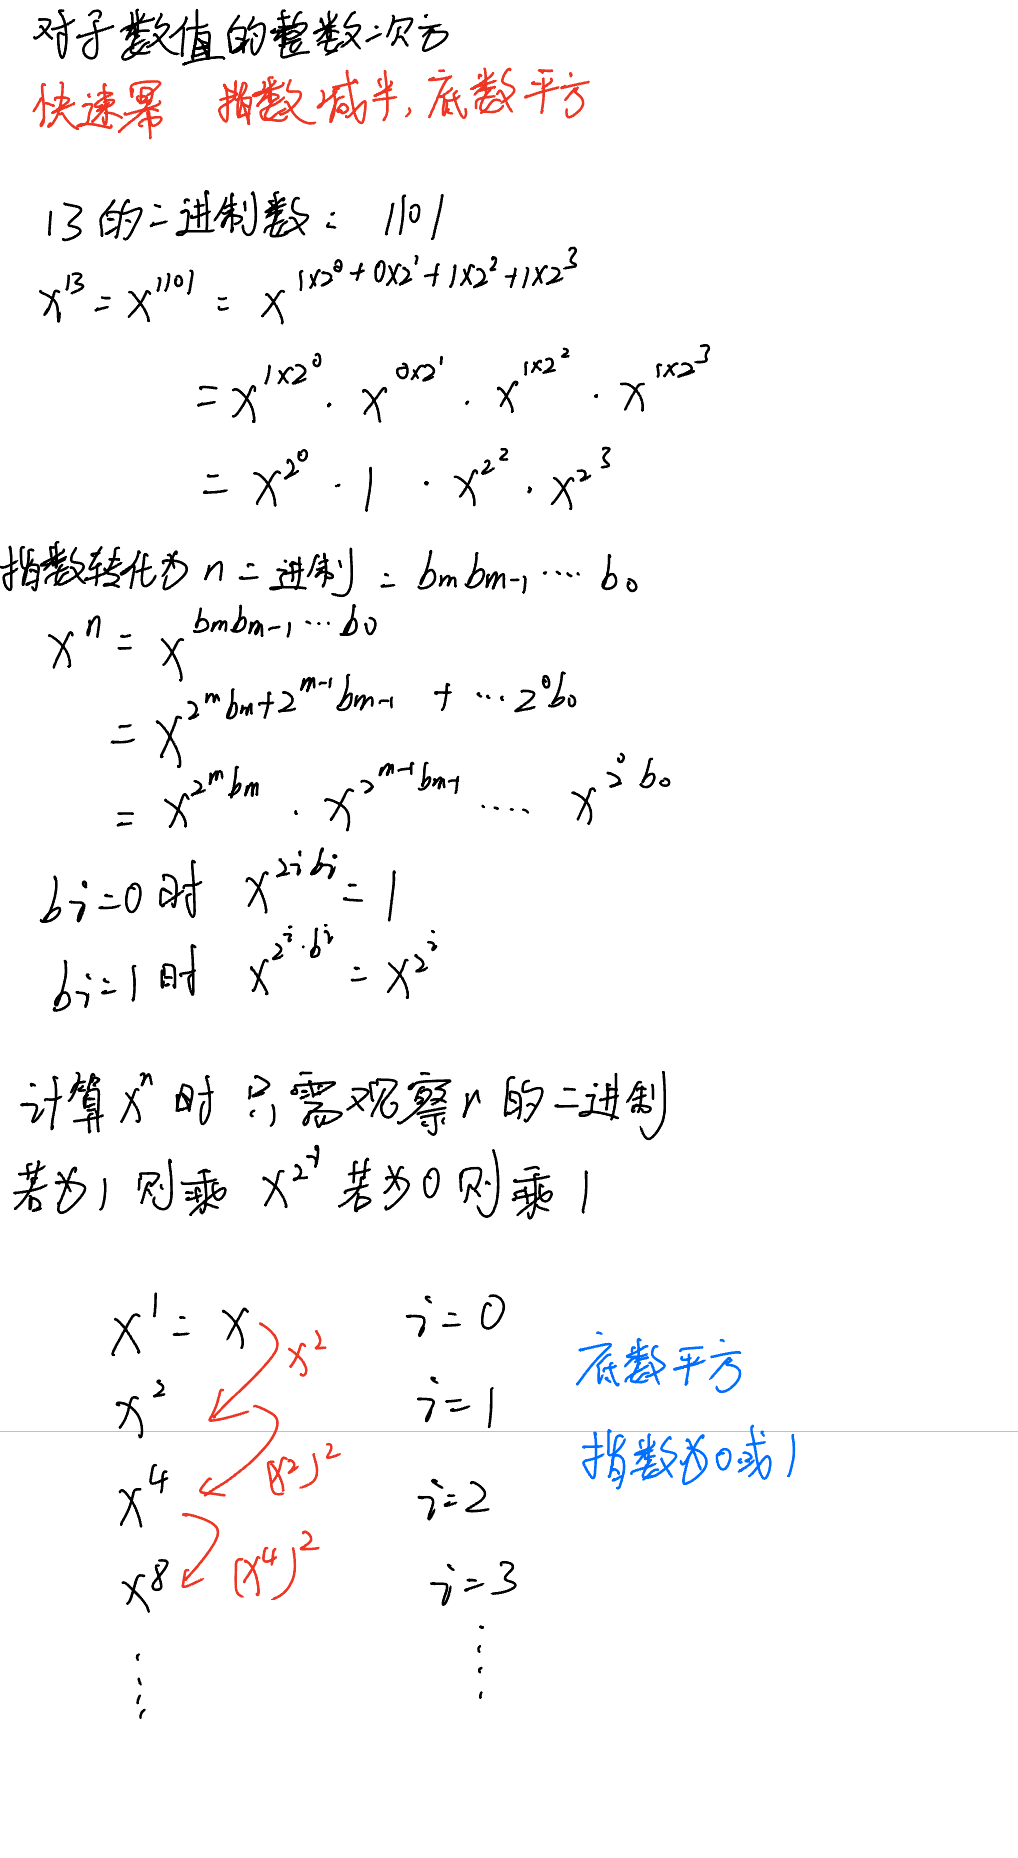 对于数值的整数次方
快速幂 指数减半,底数平方
13的二进制数: 1101
x^13 = x^1101 = x^(1×2^0+0×2^1+1×2^2+1×2^3)
= x^(1×2^0) · x^(0×2^1) · x^(1×2^2) · x^(1×2^3)
= x^(2^0) · 1 · x^(2^2) · x^(2^3)
指数转化为n二进制 = bm bm-1 ···· b0
x^n = x^(bm bm-1 ··· b0)
= x^(2^m bm + 2^(m-1) bm-1 + ··· 2^0 b0)
= x^(2^m bm) · x^(2^(m-1) bm-1) ····· x^(2^0 b0)
bi=0时 x^(2^i bi) = 1
bi=1时 x^(2^i·bi) = x^(2^i)
计算x^n时只需观察n的二进制
若为1则乘 x^(2^i) 若为0则乘1
x^1 = x x^2 i=0
底数平方
x^2 i=1
(x^2)^2
指数为0或1
x^4 i=2
x^8 (x^4)^2 i=3
⋮ ⋮